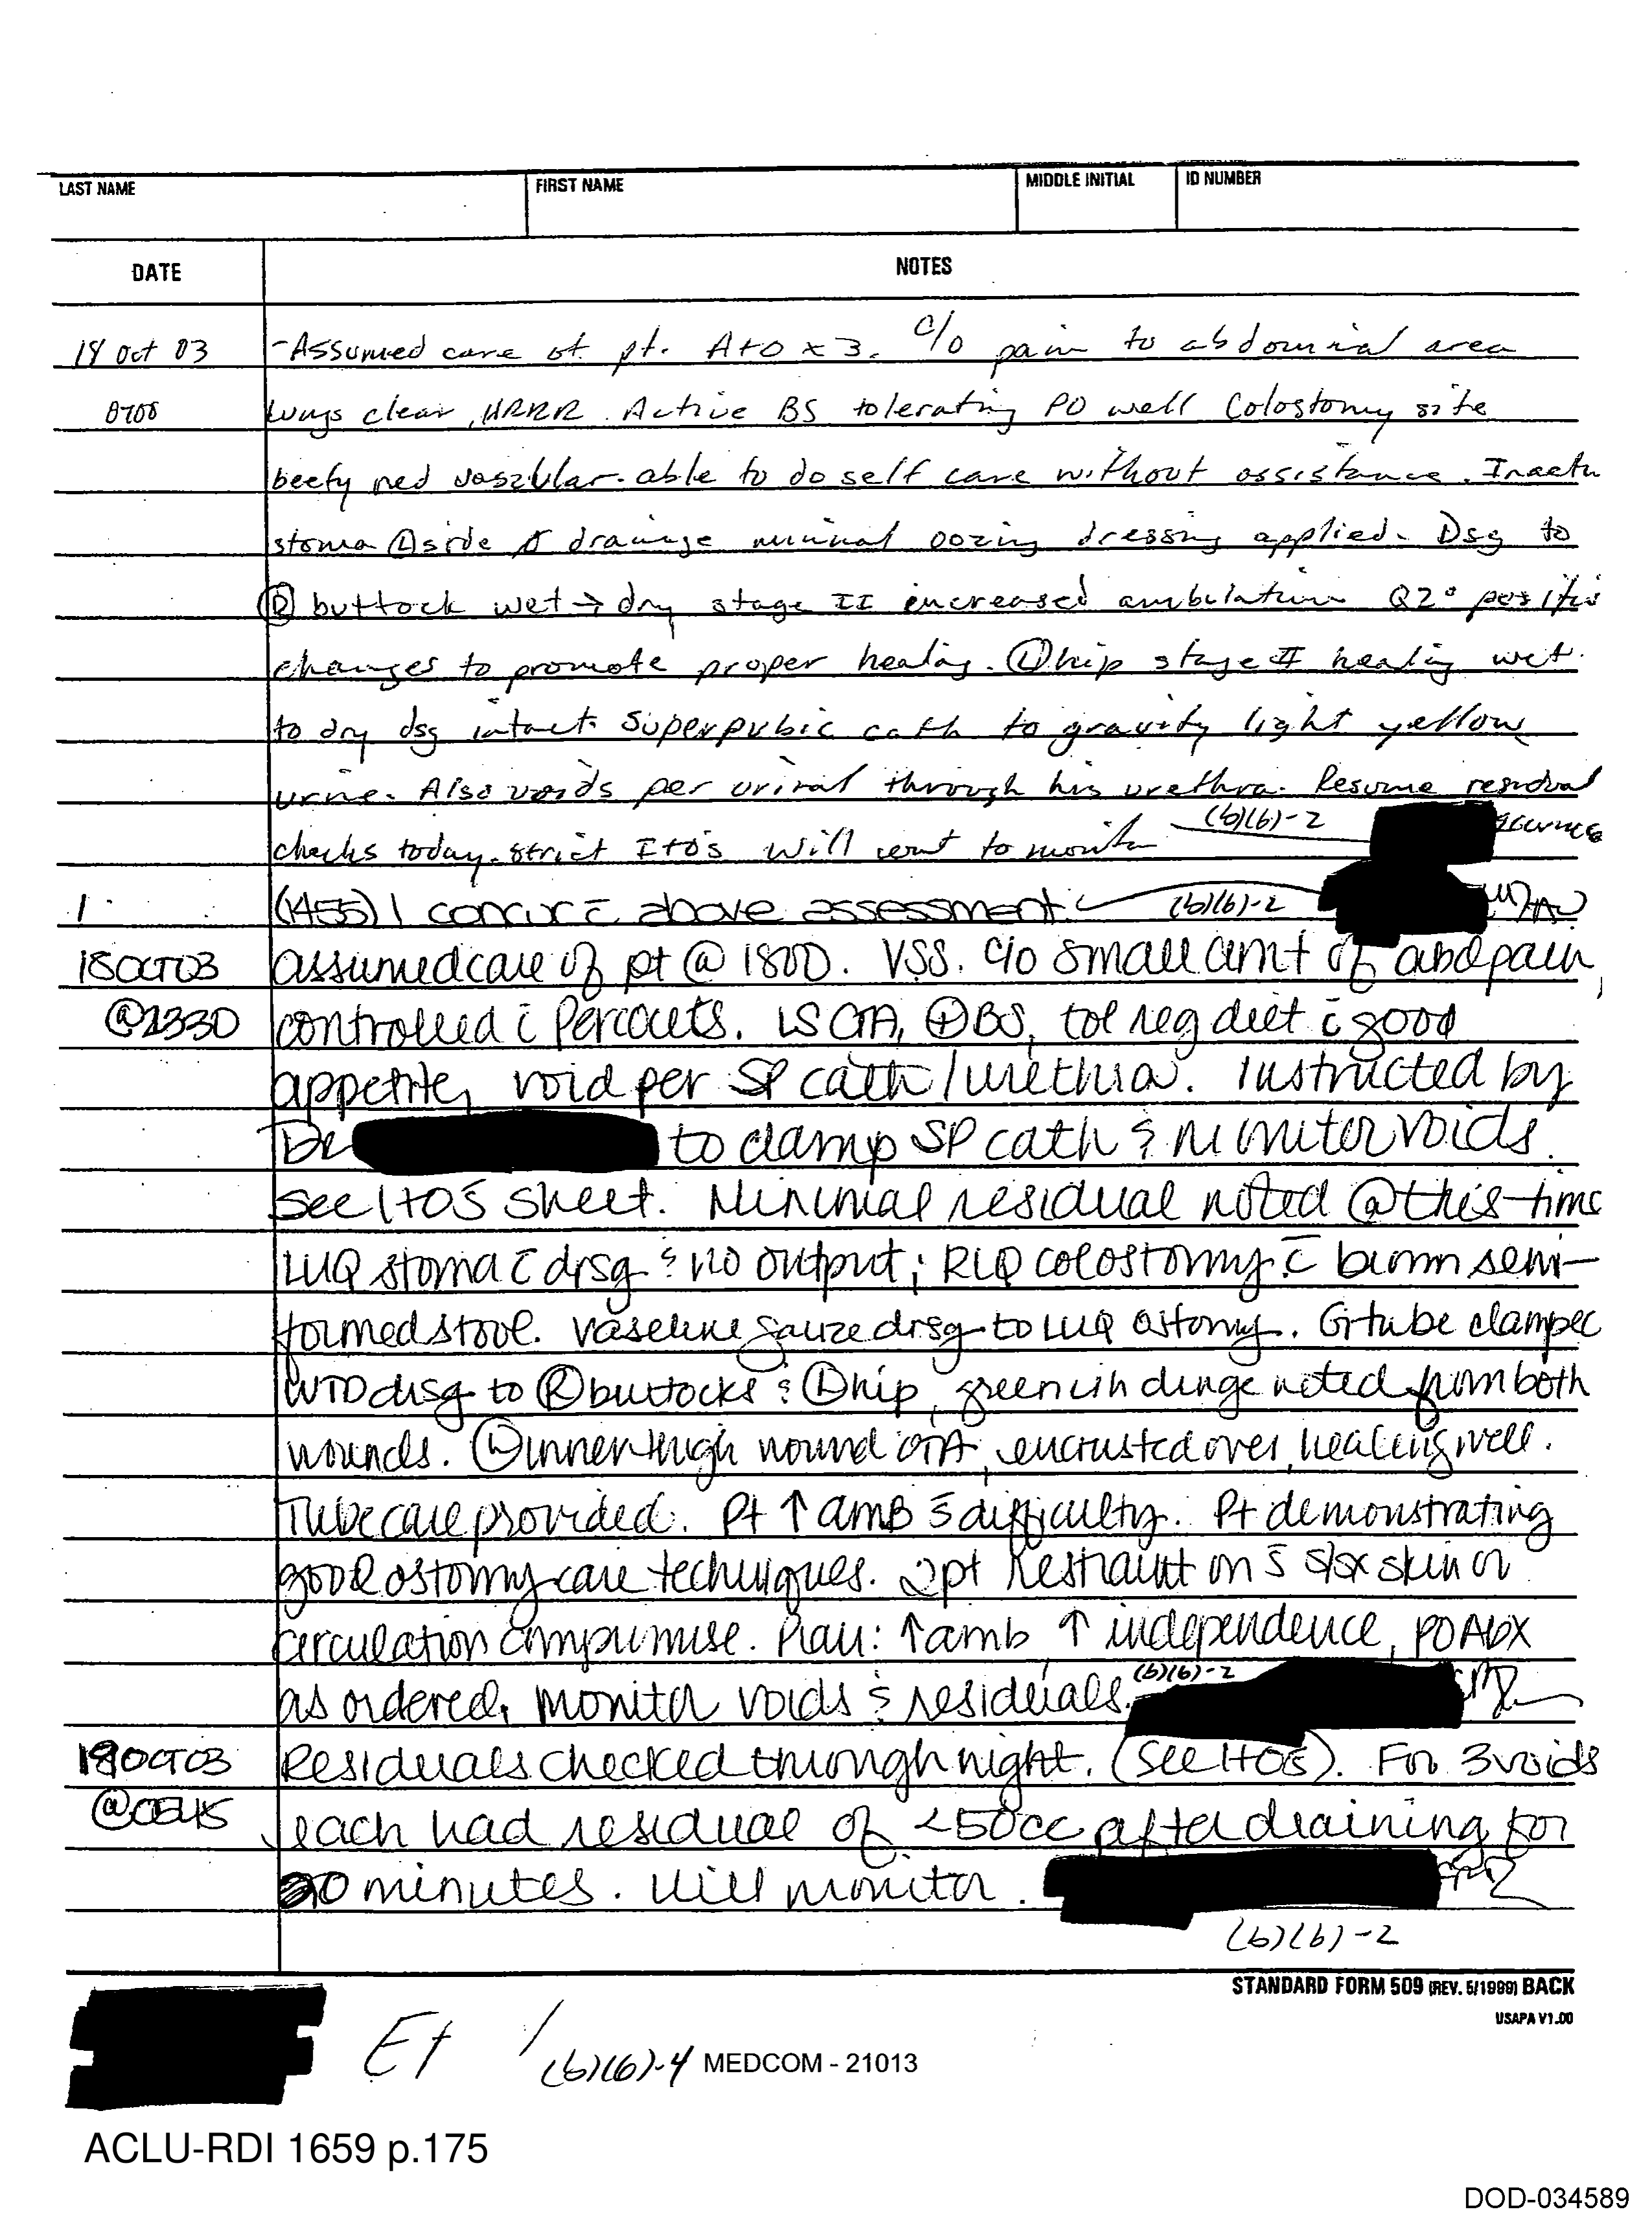 LAST NAME FIRST NAME MIDDLE INITIAL ID NUMBER
DATE NOTES
18 Oct 03 -Assumed care of pt. A+O x 3. c/o pain to abdominal area
0700 lungs clear, HRRR. Active BS tolerating PO well Colostomy site
beefy red vascular. able to do self care without assistance. Inactv
stoma Ⓛ side drainage minimal oozing dressing applied. Dsg to
Ⓡ buttock wet → dry stage II increased ambulation Q2° position
changes to promote proper healing. Ⓛ hip stage II healing wet
to dry dsg intact. Superpubic cath to gravity light yellow
urine. Also voids per urinal through his urethra. Resume residual
checks today. strict I+O's will cont to monitor (b)(6)-2
(1455) I concur c̄ above assessment (b)(6)-2
18OCT03 assumed care of pt @ 1800. VSS. c/o small amt of abd pain,
@2330 controlled c̄ Percocets. LS CTA, ⊕BS, tol reg diet c̄ good
appetite, void per SP cath/urethra. Instructed by
Dr to clamp SP cath & moniter voids.
See I+O's sheet. Minimal residual noted @ this time
LUQ stoma c̄ drsg & no output; RLQ colostomy c̄ brown semi-
formed stool. Vaseline gauze drsg to LUQ ostomy. G tube clamped
WTD drsg to Ⓡ buttocks & Ⓛ hip, greenish dinge noted from both
wounds. Ⓛ inner thigh wound OTA, encrusted over, healing well.
Tube care provided. Pt ↑ amb s̄ difficulty. Pt demonstrating
good ostomy care techniques. 2pt restraint on s̄ s/sx skin or
circulation compromise. Plan: ↑ amb ↑ independence, PO Abx
as ordered, monitor voids & residuals. (b)(6)-2
19OCT03 Residuals checked through night. (See I+O's). For 3 voids
@0545 each had residual of <50cc after draining for
20 minutes. Will monitor.
(b)(6)-2
STANDARD FORM 509 (REV. 5/1999) BACK
USAPA V1.00
(b)(6)-4 MEDCOM - 21013
ACLU-RDI 1659 p.175
DOD-034589